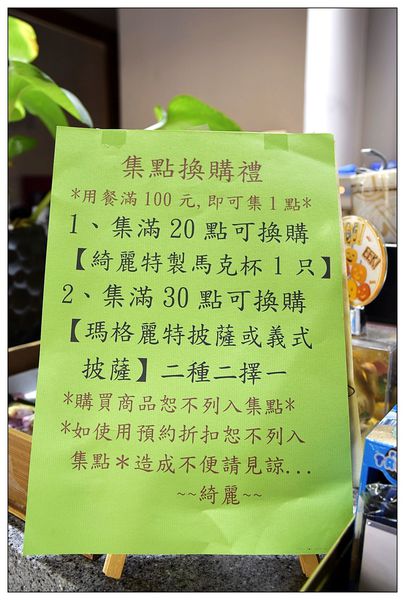 集點換購禮
*用餐滿100元,即可集1點*
1、集滿20點可換購
【綺麗特製馬克杯1只】
2、集滿30點可換購
【瑪格麗特披薩或義式
披薩】二種二擇一
*購買商品恕不列入集點*
*如使用預約折扣恕不列入
集點＊造成不便請見諒...
~~綺麗~~
EEK!